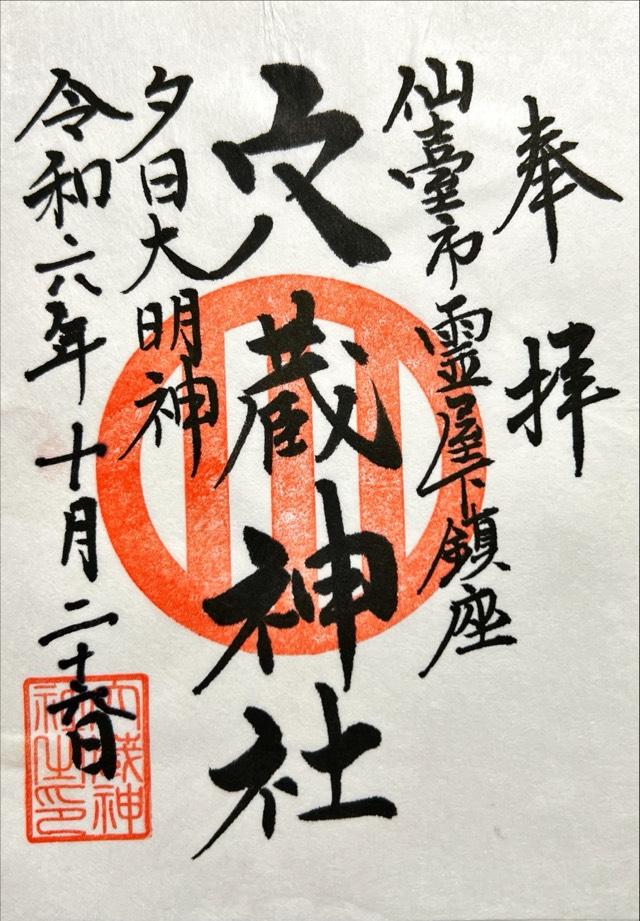 奉拝
仙臺市霊屋下鎮座
穴蔵神社
夕日大明神
令和六年十月二十六日
穴蔵神社之印